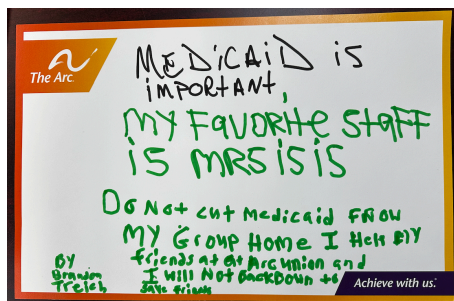 The Arc
MEDiCAiD is
iMPORTANT,
MY FAVORite StaFF
iS MRS iS iS
Do Not cut Medicaid FROM
MY Group Home I Help MY
friends at at Arc union and
I Will Not BackDown to
Save friends
BY
Treich
Achieve with us.